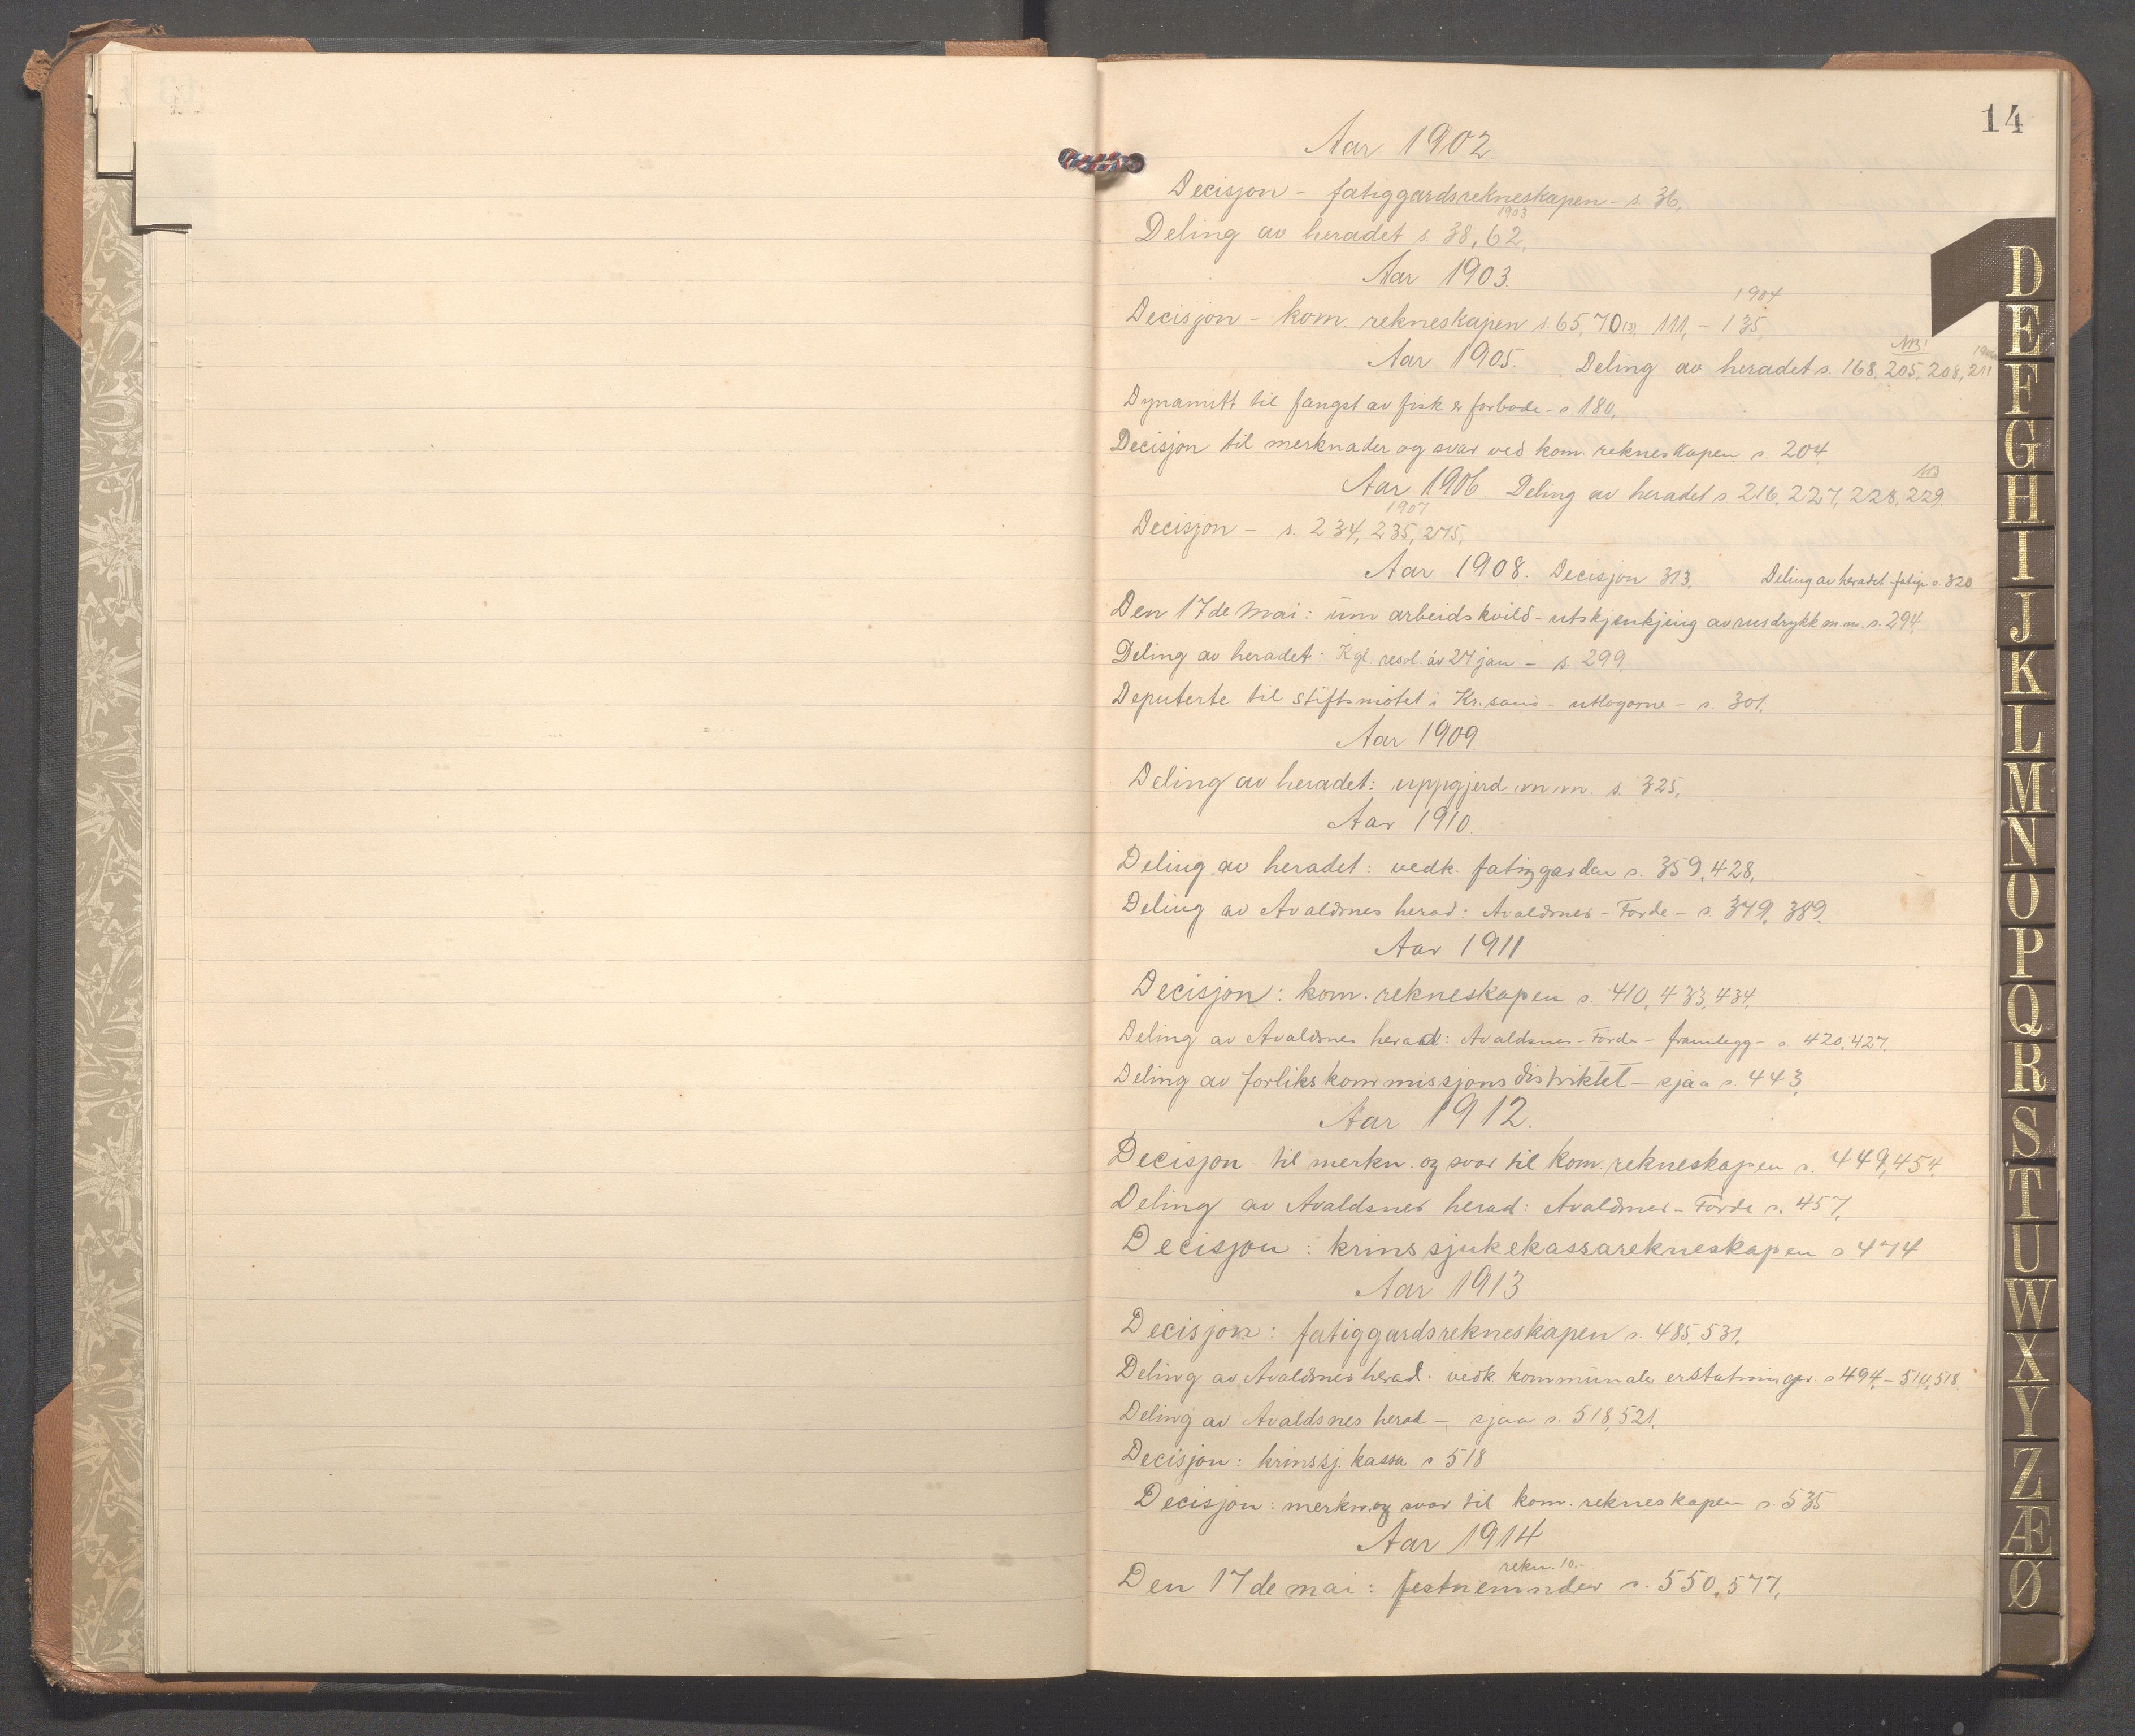 14
Aar 1902.
Decisjon - fatiggardsrekneskapen - s. 36,
1903
Deling av heradet s. 38, 62,
Aar 1903.
1904
Decisjon - kom. rekneskapen s. 65, 70(3), 111, - 135,
NB!
Aar 1905. Deling av heradet s. 168, 205, 208, 211
Dynamitt til fangst av fisk er forbode - s. 180,
Decisjon til merknader og svar ved kom. rekneskapen s. 204
NB
Aar 1906. Deling av heradet s 216, 227, 228, 229
1907
Decisjon - s. 234, 235, 275,
Aar 1908. Decisjon 313. Deling av heradet - fatigv. s. 320
Den 17de Mai: um arbeidskvild - utskjenkjeing av rusdrykk m.m. s. 294,
Deling av heradet: Kgl. resol. av 27 jan - s. 299,
Deputerte til stiftsmötet i Kr.sand - utlogorne - s. 301,
Aar 1909.
Deling av heradet: uppgjerd m.m. s. 325,
Aar 1910.
Deling av heradet: vedk. fatiggarden s. 359, 428,
Deling av Avaldsnes herad: Avaldsnes - Förde - s 379, 389,
Aar 1911
Decisjon: kom. rekneskapen s. 410, 433, 434,
Deling av Avaldsnes herad: Avaldsnes - Förde - framlegg - s. 420, 427,
Deling av forlikskommissjonsdistriktet - sjaa s. 443,
Aar 1912.
Decisjon - til merkn. og svar til kom. rekneskapen s. 449, 454,
Deling av Avaldsnes herad: Avaldsnes - Förde s. 457,
Decisjon: krinssjukekassarekneskapen s 474
Aar 1913
Decisjon: fatiggardsrekneskapen s. 485, 531,
Deling av Avaldsnes herad: vedk. kommunale erstatninger. s 494, - 510, 518
Deling av Avaldsnes herad - sjaa s. 518, 521,
Decisjon: krinssj. kassa s 518
Decisjon: merkn. og svar til kom. rekneskapen s. 535
Aar 1914
rekn. 10.-
Den 17de mai: festnemnder s. 550, 577,
D
E
F
G
H
I
J
K
L
M
N
O
P
Q
R
S
T
U
W
X
Y
Z
Æ
Ø